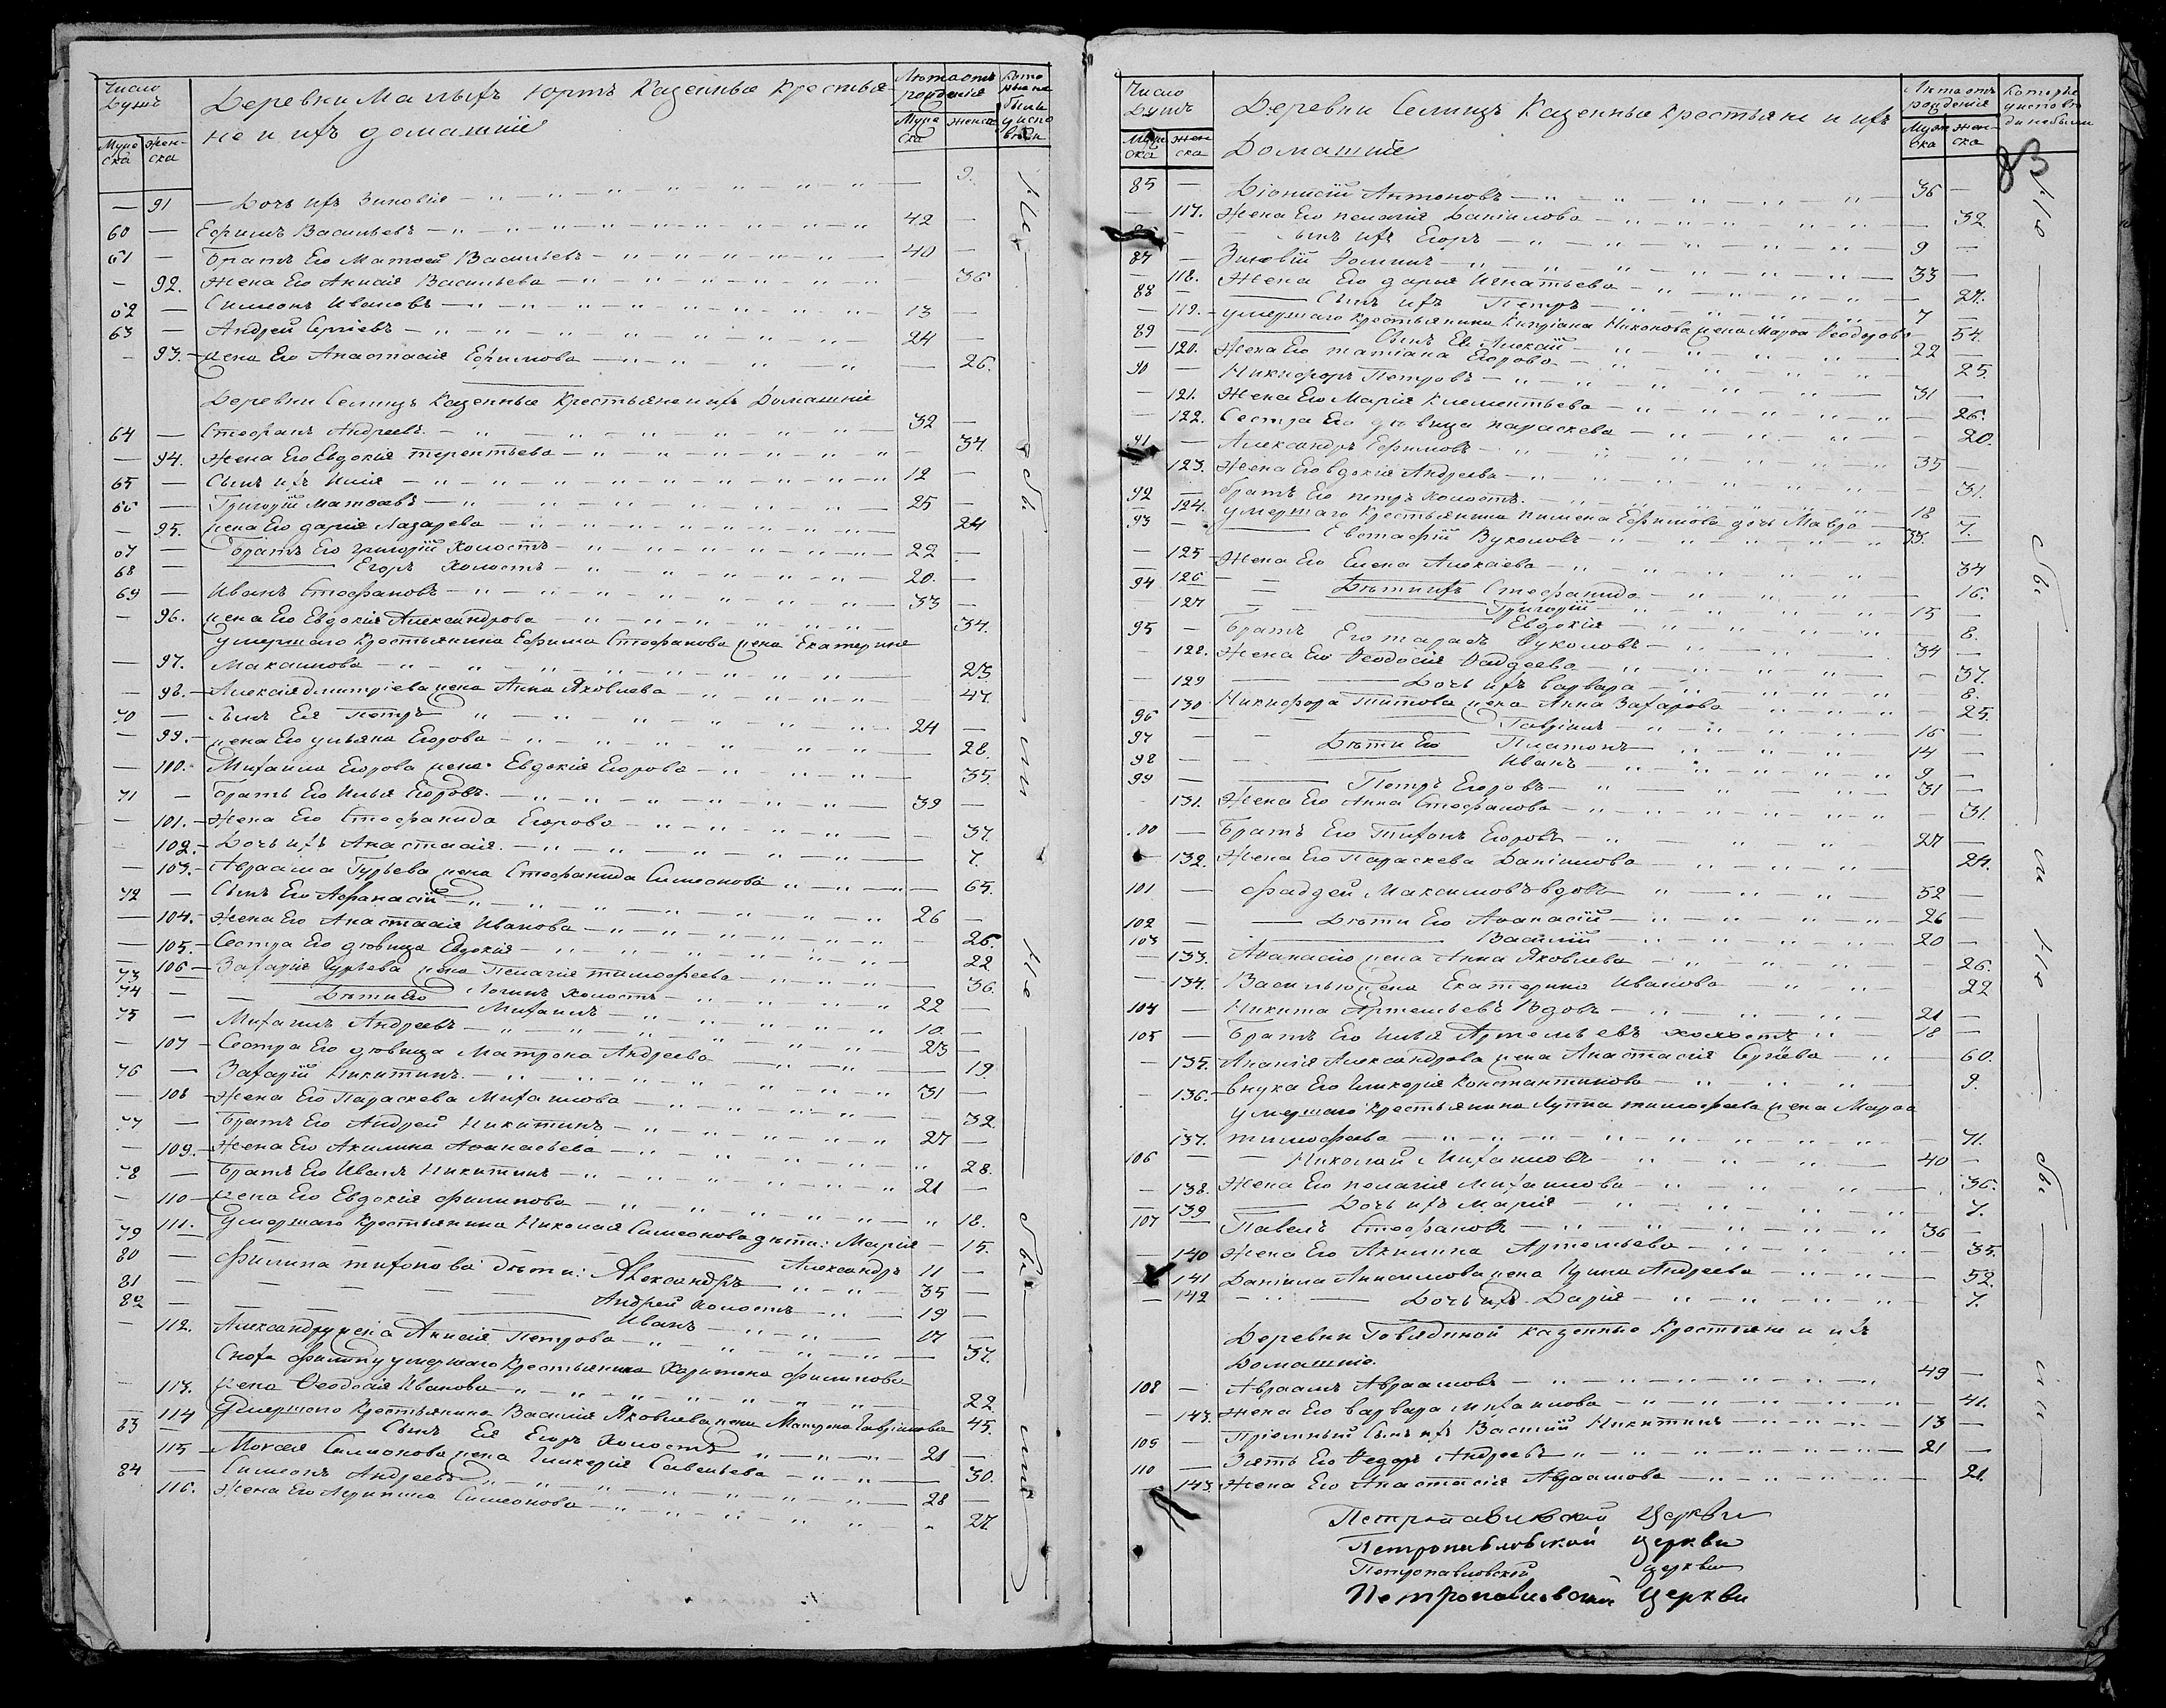 Число Душъ
Муже ска Жен- ска
Деревни Малыхъ Юртъ Казенные Крестья-
не и ихъ домашніе
Лѣта отъ рожденія
Муже ска Женс
Кото рые не были у испо вѣди
— 91 — Дочь ихъ Зиновія — 9.
60 — Ефимъ Васильевъ — 42 —
61 — Братъ Его Матѳей Васильевъ — 40 —
— 92. Жена Его Анисія Васильева — 36
62 — Симеонъ Ивановъ — 13 —
63 — Андрей Сергіевъ — 24 —
— 93. — жена Его Анастасія Ефимова — 26.
Деревни Селищъ Казенные Крестьяне и ихъ Домашніе
64 — Стефанъ Андреевъ — 32 —
— 94. Жена Его Евдокія Терентьева — 34.
65 — Сынъ ихъ Илія — 12
66 — Григорій Матѳеевъ — 25 —
— 95. жена Его Дарія Лазарева — 24
67 — братъ Его Григорій Холостъ — 22 —
68 — Егоръ Холостъ — 20. —
69 — Иванъ Стефановъ — 33 —
— 96. жена Его Евдокія Александрова — 34.
умершаго Крестьянина Ефима Стефанова жена Екатерина
— 97. Максимова — 23.
— 98. — Алексія Дмитріева жена Анна Яковлева 47.
70 — Сынъ Ея Петръ — 24 —
— 99. — жена Его Ульяна Егорова — 28.
— 100. Михаила Егорова жена Евдокія Егорова — 35.
71 — братъ Его Илья Егоровъ. — 39 —
— 101. — Жена Его Стефанида Егорова — 37.
— 102. — Дочь ихъ Анастасія. — 7.
— 103. — Авраама Гурьева жена Стефанида Симеонова — 65.
72 — Сынъ Его Афанасій — 26 —
— 104. — Жена Его Анастасія Иванова — 26.
— 105. — Сестра Его дѣвица Евдокія — 22
— 106 — Захарія Гурьева жена Пелагія Тимофеева — 36.
73 — Дѣти Его Логинъ Холостъ — 22 —
74 — Михаилъ — 10. —
75 — Михаилъ Андреевъ — 23 —
— 107 — Сестра Его дѣвица Матрона Андреева — 19.
76 — Захарій Никитинъ. — 31 —
— 108 — Жена Его Параскева Михаилова — 32.
77 — братъ Его Андрей Никитинъ — 27 —
— 109. — Жена Его Акилина Аѳанасьева — 28.
78 — братъ Его Иванъ Никитинъ — 21 —
— 110 — жена Его Евдокія Филипова — 18.
— 111. Умершаго Крестьянина Николая Симеонова дѣти: Марія — 15.
79 — Александръ 11 —
80 — Филипа Тихонова дѣти: Александръ — 35 —
81 — Андрей Холостъ — 19 —
82 — Иванъ — 17 —
— 112. Александру жена Анисія Петрова — 37.
Сноха Филипу умершаго Крестьянина Харитона Филипова
— 113. жена Ѳеодосія Иванова — 22
— 114 Умершаго Крестьянина Василія Яковлева жена Матрона Гавріилова 45.
83 — Сынъ Ея Егоръ Холостъ — 21 —
115 — Моисея Симеонова жена Гликерія Савельева — 30.
84 — Симеонъ Андреевъ — 28 —
116. Жена Его Агрипина Симеонова — 27.
Не обы ли не обы ли
Число Душъ
Муже ска Жен ска
Деревни Селищъ Казенные Крестьяне и ихъ
Домашніе
Лѣта отъ рожденія
Муже ска жен- ска
Которые у исповѣ ди не были
83
85 — Діонисій Антоновъ — 36 —
— 117. Жена Его Пелагія Даніилова — 32.
— Сынъ ихъ Егоръ — 9 —
87 — Зиновій Фоминъ — 33 —
— 118. Жена Его Дарія Игнатьева — 27.
88 — Сынъ ихъ Петръ — 7 —
— 119. — умершаго Крестьянина Кипріана Никонова жена Марѳа Ѳеодорова 54.
89 — Сынъ Ея Алексій — 22 —
— 120. Жена Его Татіана Егорова — 25.
90 — Никифоръ Петровъ — 31 —
— 121. Жена Его Марія Климентьева — 26.
— 122. Сестра Его дѣвица Параскева — 20.
91 — Александръ Ефимовъ — 35 —
123. Жена Его Евдокія Андреева — 31.
92 — братъ Его Петръ Холостъ. — 18 —
— 124. Умершаго Крестьянина Пимена Ефимова дочь Мавра — 7.
93 — Евстафій Вуколовъ — 33. —
— 125 — Жена Его Елена Алексіева — 34
— 126 — Дѣти ихъ Стефанида — 16.
94 — Григорій — 15 —
— 127 Евдокія — 8.
95 — Братъ Его Тарасъ Вуколовъ — 34 —
— 128. Жена Его Ѳеодосія Фаддеева — 37.
— 129 Дочь ихъ Варвара — 8.
— 130 Никифора Титова жена Анна Захарова — 25.
96 — Гавріилъ — 16 —
97 — Дѣти Его Платонъ — 14 —
98 — Иванъ — 9 —
99 — Петръ Егоровъ — 31 —
131. Жена Его Анна Стефанова — 31.
100 — Братъ Его Тихонъ Егоровъ — 27 —
— 132. Жена Его Параскева Даніилова — 24.
101 — Фаддей Максимовъ вдовъ — 52 —
102 — Дѣти Его Аѳанасій — 26 —
103 — Василій — 20 —
— 133. Аѳанасію жена Анна Яковлева — 26.
— 134. Василью жена Екатерина Иванова — 22
104 — Никита Артемьевъ Вдовъ — 21 —
105 — Братъ Его Илья Артемьевъ холостъ — 18 —
— 135. Ананія Александрова жена Анастасія Сергіева — 60.
— 136. — внука Его Гликерія Константинова — 9.
умершаго Крестьянина Луппа Тимофеева жена Марѳа
137. Тимофеева — 71.
106 — Николай Михаиловъ — 40 —
— 138. Жена Его Пелагія Михаилова — 36.
— 139 Дочь ихъ Марія — 7.
107 — Павелъ Стефановъ — 36 —
— 140 Жена Его Акилина Артемьева — 35.
141 Даніила Анисимова жена Ирина Андреева — 52.
— 142 — Дочь ихъ Дарія — 7.
Деревни Говядиной казенные Крестьяне и ихъ
Домашніе.
108 — Авраамъ Авраамовъ — 49 —
— 143. Жена Его Варвара Михаилова — 41.
109 — Пріемный Сынъ ихъ Василій Никитинъ — 13 —
110 — Зять Его Ѳедоръ Андреевъ — 21 —
— 143. Жена Его Анастасія Авраамова — 21.
Не обы ли не обы ли
Петропавловской Церкви
Петропавловской церкви
Петропавловской церкви
Петропавловской Церкви